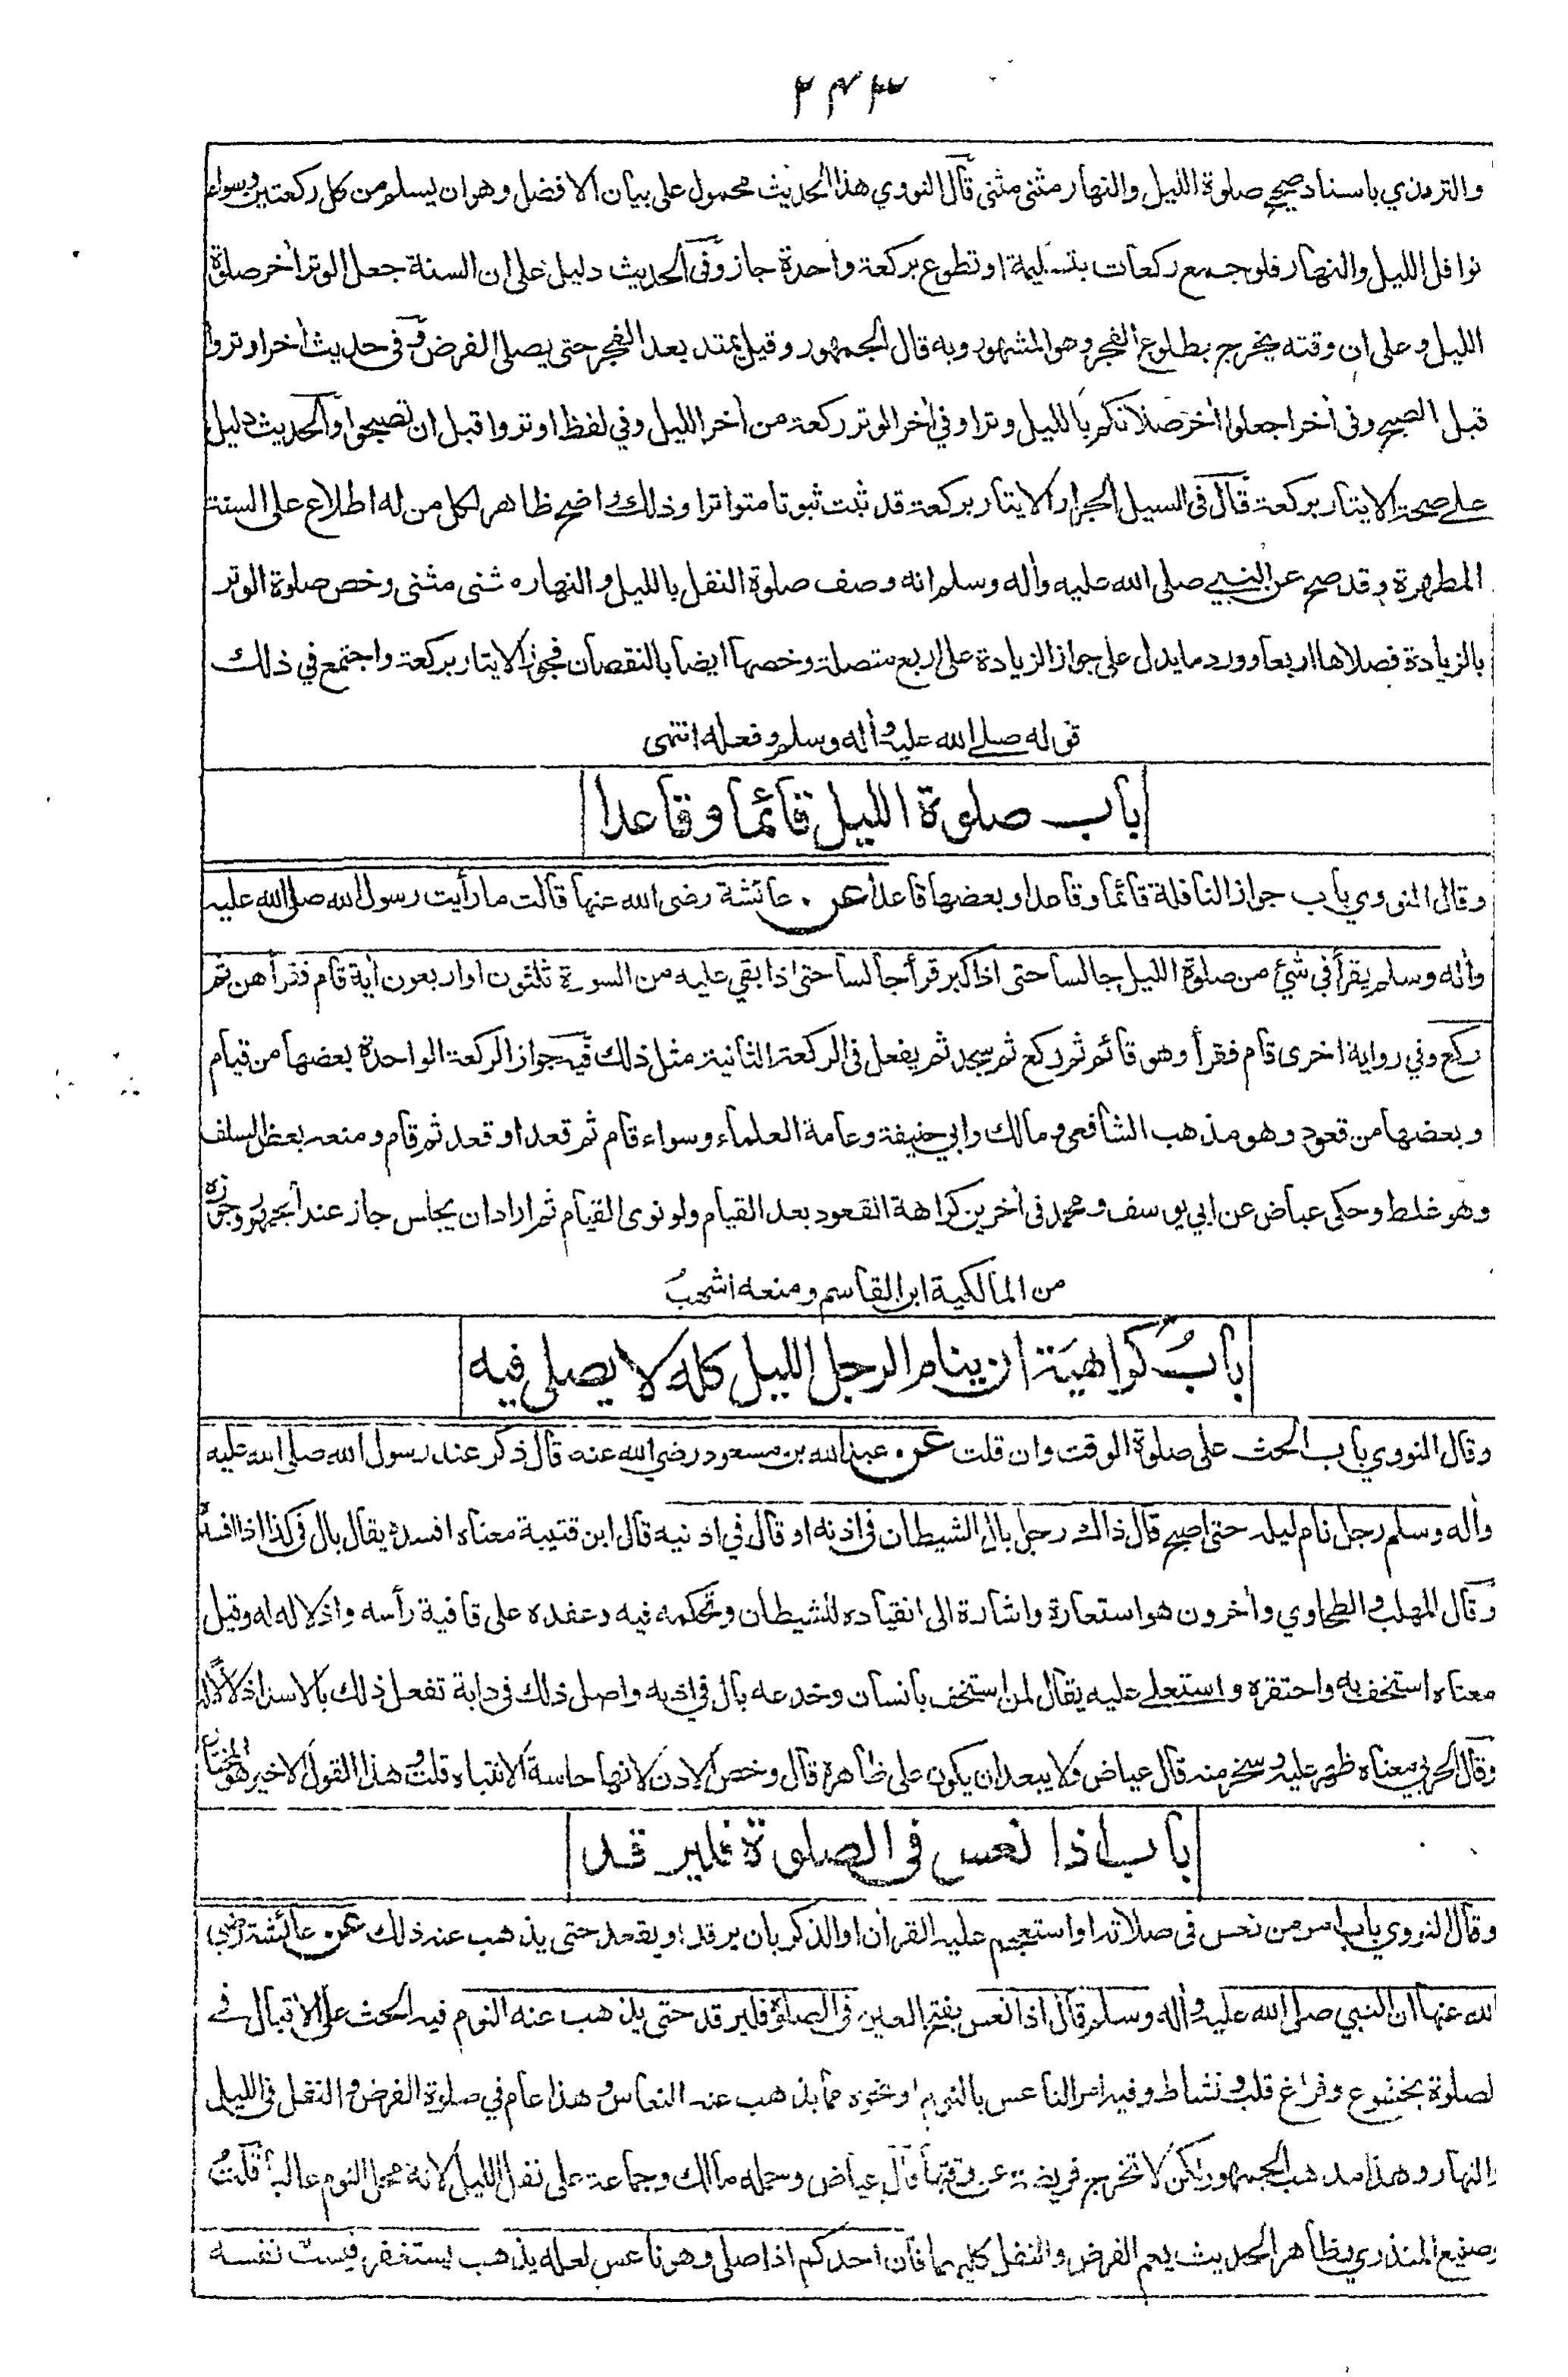 ٢٤٣
والترمذي باسناد صحيح صلوة الليل والنهار مثنى مثنى قال النووي هذا الحديث محمول على بيان الافضل وهو ان يسلم من كل ركعتين وسواء
نوافل الليل والنهار فلو جمع ركعات بتسليمة او تطوع بركعة واحدة جاز وفى الحديث دليل على ان السنة جعل الوتر أخر صلوة
الليل وعلى ان وقته يخرج بطلوع الفجر وهو المشهور وبه قال الجمهور وقيل يمتد بعد الفجر حتى يصلى الفرض وفى حديث أخر اوتروا
قبل الصبح وفى أخر اجعلوا أخر صلاتكم بالليل وترا وفي أخر الوتر ركعة من أخر الليل وفي لفظ اوتروا قبل ان تصبحوا والحديث دليل
على صحة الايتار بركعة قال فى السيل الجرار والايتار بركعة قد ثبت ثبوتا متواترا وذلك واضح ظاهر لكل من له اطلاع على السنة
المطهرة وقد صح عن النبي صلى الله عليه وأله وسلم انه وصف صلوة النفل بالليل والنهار ه ثنى مثنى وخص صلوة الوتر
بالزيادة فصلاها اربعا وورد ما يدل على جواز الزيادة على اربع متصلة وخصها ايضا بالنقصان فجوز الايتار بركعة واجتمع في ذلك
قوله صلى الله عليه وأله وسلم وفعله انتهى
باب صلوة الليل قائما وقاعدا
وقال النووي باب جواز النافلة قائما وقاعدا وبعضها قاعدا عن عائشة رضى الله عنها قالت ما رأيت رسول الله صلى الله عليه
وأله وسلم يقرأ في شئ من صلوة الليل جالسا حتى اذا كبر قرأ جالسا حتى اذا بقي عليه من السورة ثلثون او اربعون أية قام فقرأهن ثم
ركع وفي رواية اخرى قام فقرأ وهو قائم ثم ركع ثم سجد ثم يفعل فى الركعة الثانية مثل ذلك فيه جواز الركعة الواحدة بعضها من قيام
وبعضها من قعود وهو مذهب الشافعي ومالك وابي حنيفة وعامة العلماء وسواء قام ثم قعد او قعد ثم قام ومنعه بعض السلف
وهو غلط وحكى عياض عن ابي يوسف ومحمد فى أخرين كراهة القعود بعد القيام ولو نوى القيام ثم اراد ان يجلس جاز عند الجمهور وجوزه
من المالكية ابن القاسم ومنعه اشهب
باب كراهية ان ينام الرجل الليل كله لا يصلى فيه
وقال النووي باب الحث على صلوة الوقت وان قلت عن عبد الله بن مسعود رضي الله عنه قال ذكر عند رسول الله صلى الله عليه
وأله وسلم رجل نام ليله حتى اصبح قال ذاك رجل بال الشيطان فى اذنه او قال في اذنيه قال ابن قتيبة معناه افسده يقال بال فى كذا اذا افسده
وقال المهلب والطحاوي وأخرون هو استعارة واشارة الى انقياده للشيطان وتحكمه فيه وعقده على قافية رأسه واذلاله له وقيل
معناه استخف به واحتقره واستعلى عليه يقال لمن استخف بانسان وخدعه بال في اذنه واصل ذلك فى دابة تفعل ذلك بالاسد اذلالا له
وقال الحربي معناه ظهر عليه وسخر منه قال عياض ولا يبعد ان يكون على ظاهره قال وخص الاذن لانها حاسة الانتباه قلت وهذا القول الاخير هو المختار
باب اذا نعس فى الصلوة فلير قد
وقال النووي باب امر من نعس فى صلاته او استعجم عليه القرأن او الذكر بان يرقد او يقعد حتى يذهب عنه ذلك عن عائشة رضي
الله عنها ان النبي صلى الله عليه وأله وسلم قال اذا نعس بفتح العين فى الصلوة فلير قد حتى يذهب عنه النوم فيه الحث على الاقبال في
لصلوة بخشوع وفراغ قلب ونشاط وفيه امر الناعس بالنوم او نحوه مما يذهب عنه النعاس وهذا عام في صلوة الفرض والنفل فى الليل
والنهار وهذا مذهب الجمهور لكن لا تخرج فريضة عن وقتها قال عياض وحمله مالك وجماعة على نفل الليل لانه محل النوم غالبا قلت
وصنيع المنذري وظاهر الحديث يعم الفرض والنفل كليهما فان احدكم اذا صلى وهو ناعس لعله يذهب يستغفر فيسب نفسه